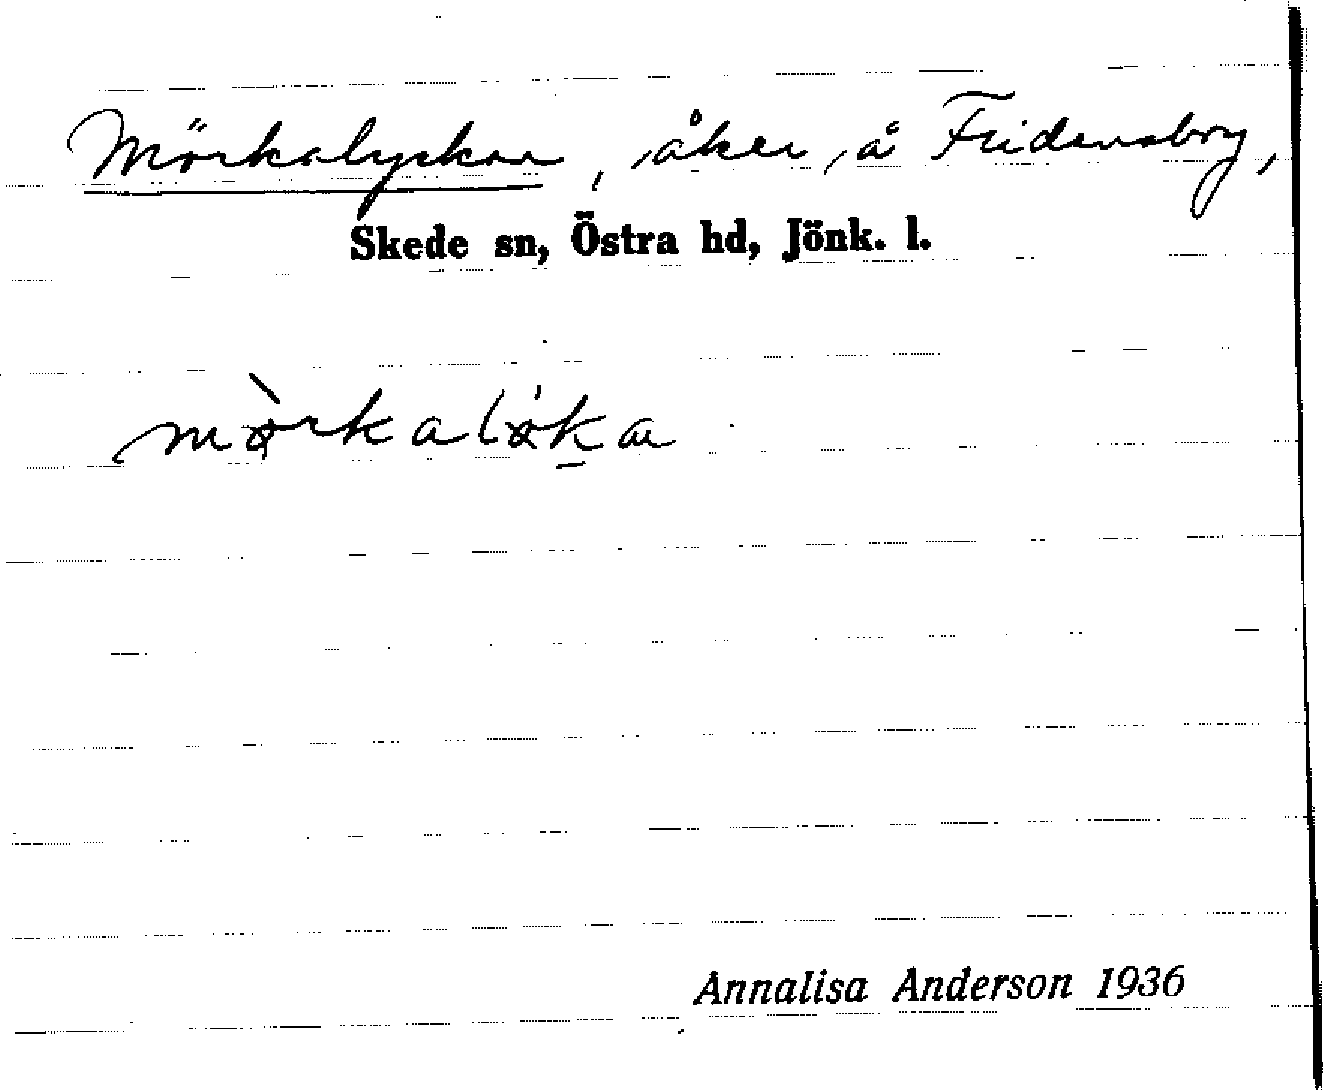 Mörkalyckan, åker, å Fridensborg,
Skede sn, Östra hd, Jönk. l.
Annalisa Anderson 1936